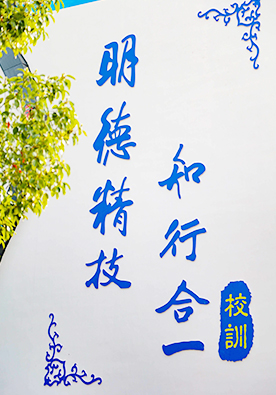 明德精技
知行合一
校訓